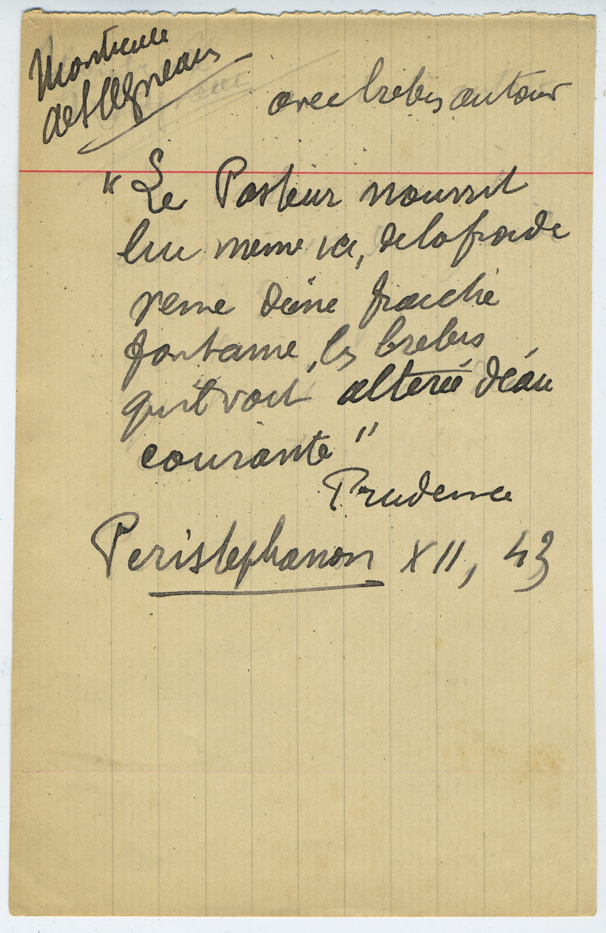 Monticule
de l'Agneau
avec brebis autour
"Le Pasteur nourrit
lui meme ici, de la froide
veine d'une fraiche
fontaine, les brebis
qu'il voit alterée d'eau
courante"
Prudence
Peristephanon XII, 43